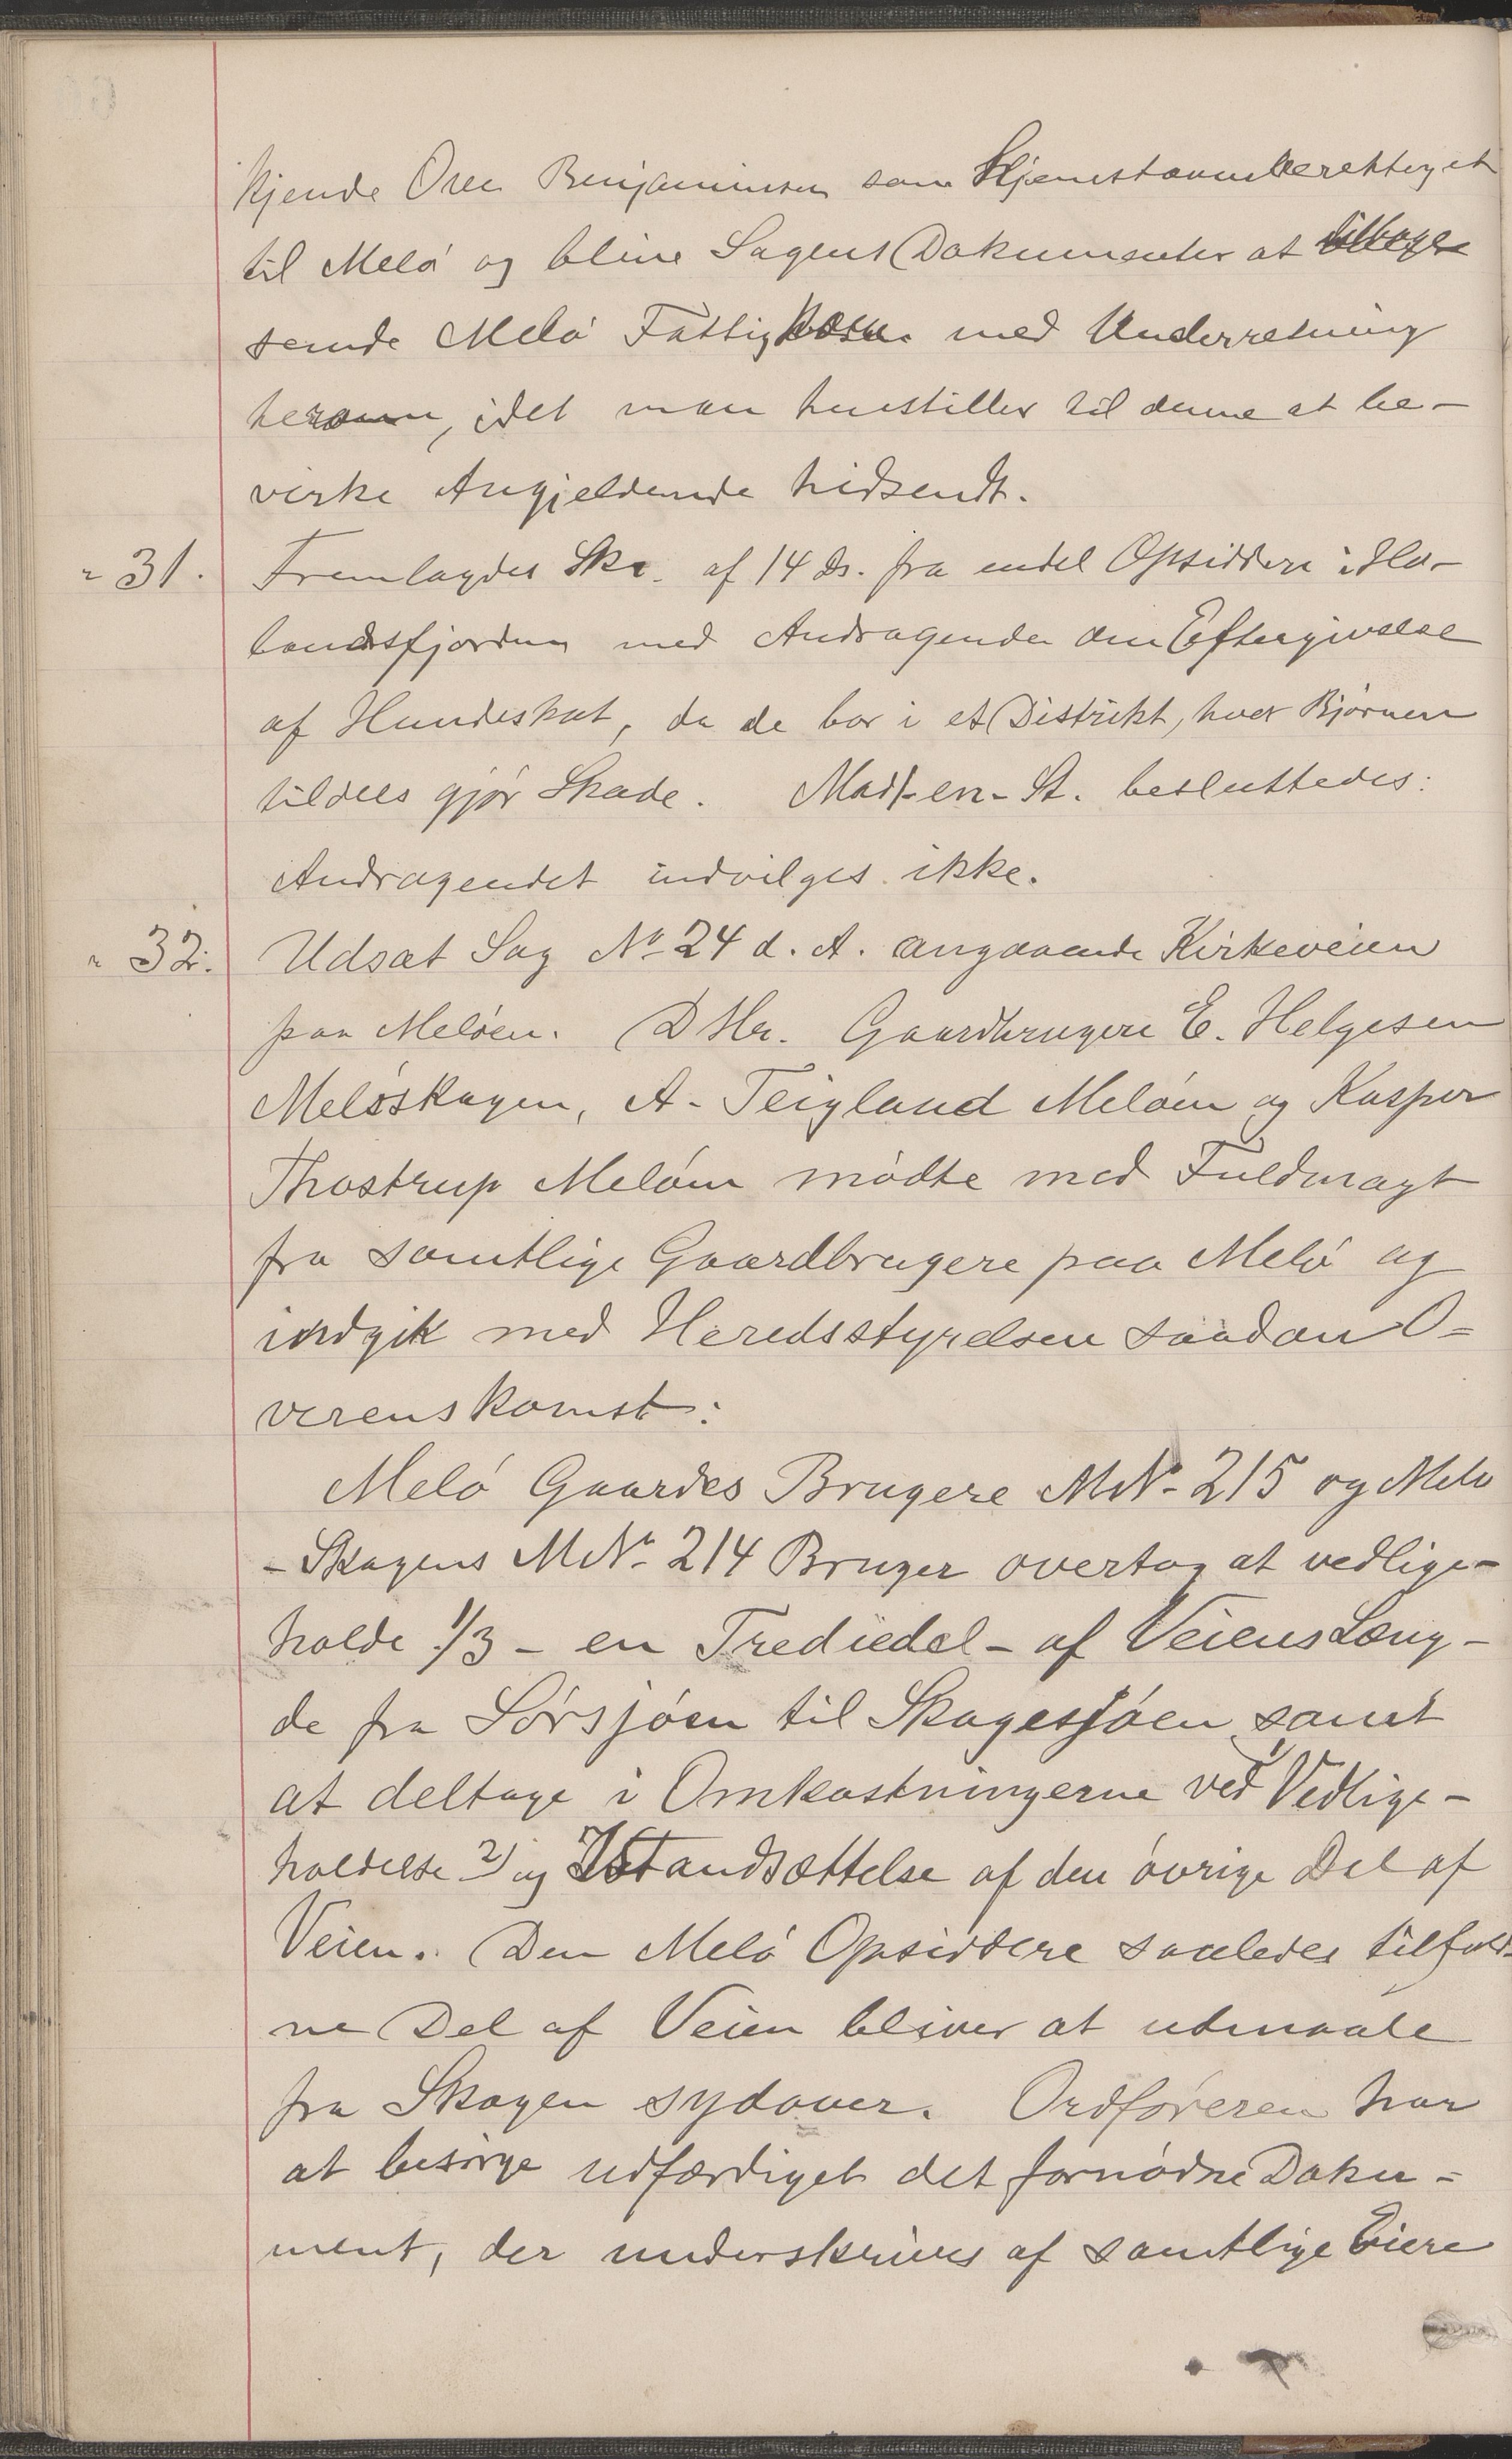 kjende Ove Benjaminsen som Hjemstavnsberettiget
til Melø og blive Sagens Dokumenter at tilbage
sende Melø Fattigkasse med Underretning
herom, idet man henstiller til denne at be-
virke Angjeldende hidsendt.
" 31. Fremlagdes Skr. af 14 ds. fra endel Opsiddere i Ha-
landsfjorden med Andragende om Eftergivelse
af Hundeskat, da de bor i et Distrikt, hvor Bjørnen
tildels gjør Skade. Mod 1-en- St. besluttedes:
Andragendet indvilges ikke.
" 32. Udsat Sag No 24 d. A. angaaende Kirkeveien
paa Meløen. D Hr. Gaardbrugere E. Helgesen
Meløskagen, A. Teigland Meløen og Kasper
Thostrup Meløen mødte med Fuldmagt
fra samtlige Gaardbrugere paa Melø og
indgik med Heredsstyrelsen saadan O=
verenskomst:
Melø Gaardes Brugere MNo 215 og Melø
-Skagens MNo 214 Bruger overtog at vedlige-
holde 1/3 - en Trediedel - af Veiens Læng-
de fra Sørsjøen til Skagesjøen samt
at deltage i Omkostningerne ved 1) Vedlige-
holdelse 2) og Istandsættelse af den øvrige Del af
Veien. Den Melø Opsiddere saaledes tilfald-
ne Del af Veien bliver at udmaale
fra Skagen sydover. Ordføreren har
at besørge udfærdiget det fornødne Doku=
ment, der underskrives af samtlige Eiere